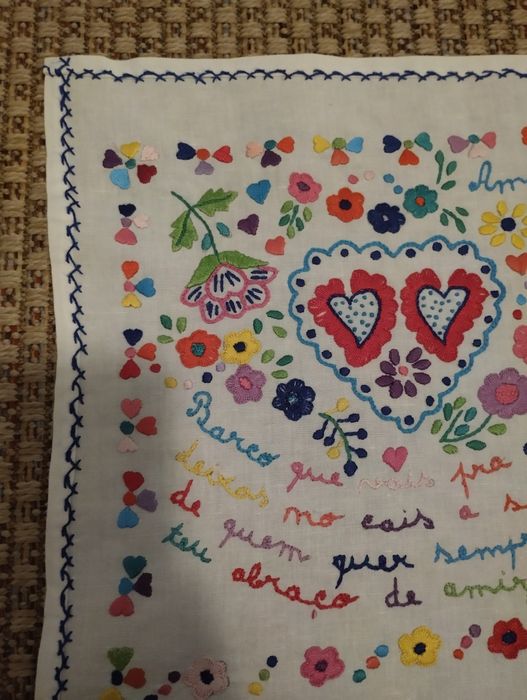 Am
Barco que partis pra
deixas no cais a s
de quem quer sempr
teu abraço de amiz